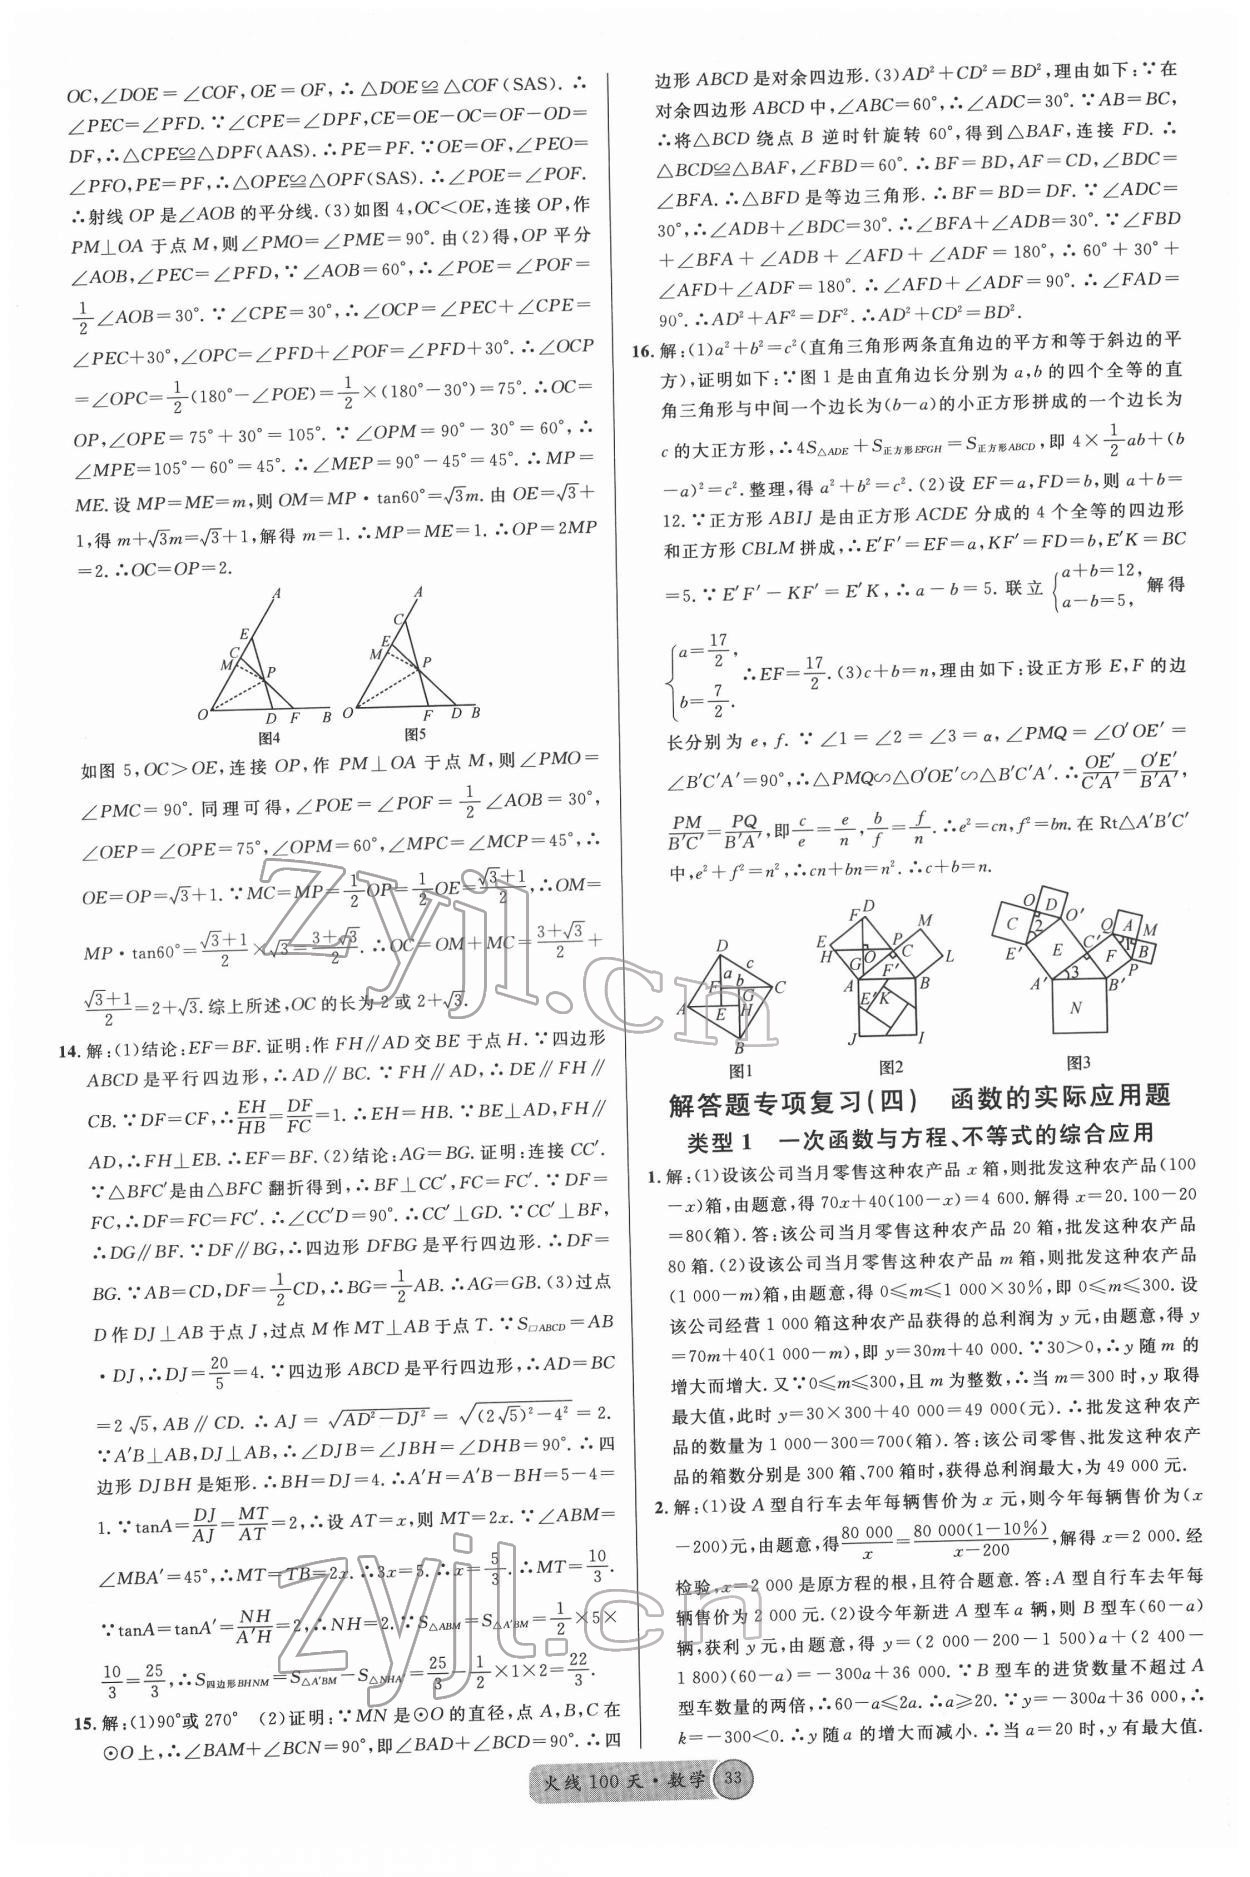 OC,∠DOE=∠COF,OE=OF,∴△DOE≌△COF(SAS).∴
∠PEC=∠PFD.∵∠CPE=∠DPF,CE=OE-OC=OF-OD=
DF,∴△CPE≌△DPF(AAS).∴PE=PF.∵OE=OF,∠PEO=
∠PFO,PE=PF,∴△OPE≌△OPF(SAS).∴∠POE=∠POF.
∴射线 OP 是∠AOB 的平分线.(3)如图 4,OC<OE,连接 OP,作
PM⊥OA 于点 M,则∠PMO=∠PME=90°.由(2)得,OP 平分
∠AOB,∠PEC=∠PFD,∵∠AOB=60°,∴∠POE=∠POF=
1/2∠AOB=30°.∵∠CPE=30°,∴∠OCP=∠PEC+∠CPE=
∠PEC+30°,∠OPC=∠PFD+∠POF=∠PFD+30°.∴∠OCP
=∠OPC=1/2(180°-∠POE)=1/2×(180°-30°)=75°.∴OC=
OP,∠OPE=75°+30°=105°.∵∠OPM=90°-30°=60°,∴
∠MPE=105°-60°=45°.∴∠MEP=90°-45°=45°.∴MP=
ME.设 MP=ME=m,则 OM=MP·tan60°=√3m.由 OE=√3+
1,得 m+√3m=√3+1,解得 m=1.∴MP=ME=1.∴OP=2MP
=2.∴OC=OP=2.
A
E
C
M
P
O D F B
图4
A
C
E
M
P
O F D B
图5
如图 5,OC>OE,连接 OP,作 PM⊥OA 于点 M,则∠PMO=
∠PMC=90°.同理可得,∠POE=∠POF=1/2∠AOB=30°,
∠OEP=∠OPE=75°,∠OPM=60°,∠MPC=∠MCP=45°,∴
OE=OP=√3+1.∵MC=MP=1/2OP=1/2OE=(√3+1)/2,∴OM=
MP·tan60°=(√3+1)/2×√3=(3+√3)/2.∴OC=OM+MC=(3+√3)/2+
(√3+1)/2=2+√3.综上所述,OC 的长为 2 或 2+√3.
14.解:(1)结论:EF=BF.证明:作 FH∥AD 交 BE 于点 H.∵四边形
ABCD 是平行四边形,∴AD∥BC.∵FH∥AD,∴DE∥FH∥
CB.∵DF=CF,∴EH/HB=DF/FC=1.∴EH=HB.∵BE⊥AD,FH∥
AD,∴FH⊥EB.∴EF=BF.(2)结论:AG=BG.证明:连接 CC′.
∵△BFC′是由△BFC 翻折得到,∴BF⊥CC′,FC=FC′.∵DF=
FC,∴DF=FC=FC′.∴∠CC′D=90°.∴CC′⊥GD.∵CC′⊥BF,
∴DG∥BF.∵DF∥BG,∴四边形 DFBG 是平行四边形.∴DF=
BG.∵AB=CD,DF=1/2CD,∴BG=1/2AB.∴AG=GB.(3)过点
D 作 DJ⊥AB 于点 J,过点 M 作 MT⊥AB 于点 T.∵S▱ABCD=AB
·DJ,∴DJ=20/5=4.∵四边形 ABCD 是平行四边形,∴AD=BC
=2√5,AB∥CD.∴AJ=√(AD²-DJ²)=√((2√5)²-4²)=2.
∵A′B⊥AB,DJ⊥AB,∴∠DJB=∠JBH=∠DHB=90°.∴四
边形 DJBH 是矩形.∴BH=DJ=4.∴A′H=A′B-BH=5-4=
1.∵tanA=DJ/AJ=MT/AT=2,∴设 AT=x,则 MT=2x.∵∠ABM=
∠MBA′=45°,∴MT=TB=2x.∴3x=5.∴x=5/3.∴MT=10/3.
∵tanA=tanA′=NH/A′H=2,∴NH=2.∵S△ABM=S△A′BM=1/2×5×
10/3=25/3,∴S四边形BHNM=S△A′BM-S△NHA′=25/3-1/2×1×2=22/3.
15.解:(1)90°或 270° (2)证明:∵MN 是⊙O 的直径,点 A,B,C 在
⊙O 上,∴∠BAM+∠BCN=90°,即∠BAD+∠BCD=90°.∴四
边形 ABCD 是对余四边形.(3)AD²+CD²=BD²,理由如下:∵在
对余四边形 ABCD 中,∠ABC=60°,∴∠ADC=30°.∵AB=BC,
∴将△BCD 绕点 B 逆时针旋转 60°,得到△BAF,连接 FD.∴
△BCD≌△BAF,∠FBD=60°.∴BF=BD,AF=CD,∠BDC=
∠BFA.∴△BFD 是等边三角形.∴BF=BD=DF.∵∠ADC=
30°,∴∠ADB+∠BDC=30°.∴∠BFA+∠ADB=30°.∵∠FBD
+∠BFA+∠ADB+∠AFD+∠ADF=180°,∴60°+30°+
∠AFD+∠ADF=180°.∴∠AFD+∠ADF=90°.∴∠FAD=
90°.∴AD²+AF²=DF².∴AD²+CD²=BD².
16.解:(1)a²+b²=c²(直角三角形两条直角边的平方和等于斜边的平
方),证明如下:∵图 1 是由直角边长分别为 a,b 的四个全等的直
角三角形与中间一个边长为(b-a)的小正方形拼成的一个边长为
c 的大正方形,∴4S△ADE+S正方形EFGH=S正方形ABCD,即 4×1/2ab+(b
-a)²=c².整理,得 a²+b²=c².(2)设 EF=a,FD=b,则 a+b=
12.∵正方形 ABIJ 是由正方形 ACDE 分成的 4 个全等的四边形
和正方形 CBLM 拼成,∴E′F′=EF=a,KF′=FD=b,E′K=BC
=5.∵E′F′-KF′=E′K,∴a-b=5.联立{a+b=12,a-b=5,解得
{a=17/2,b=7/2.∴EF=17/2.(3)c+b=n,理由如下:设正方形 E,F 的边
长分别为 e,f.∵∠1=∠2=∠3=α,∠PMQ=∠O′OE′=
∠B′C′A′=90°,∴△PMQ∽△O′OE′∽△B′C′A′.∴OE′/C′A′=O′E′/B′A′,
PM/B′C′=PQ/B′A′,即c/e=e/n,b/f=f/n.∴e²=cn,f²=bn.在 Rt△A′B′C′
中,e²+f²=n²,∴cn+bn=n².∴c+b=n.
D
c
a b
F G C
A E H
B
图1
D
F M
E P
H O C
G F′ L
A B
E′ K
J I
图2
O D O′
C 2 Q A M
E′ C′ 1 B
E F P
3
A′ B′
N
图3
解答题专项复习(四) 函数的实际应用题
类型 1 一次函数与方程、不等式的综合应用
1.解:(1)设该公司当月零售这种农产品 x 箱,则批发这种农产品(100
-x)箱,由题意,得 70x+40(100-x)=4 600.解得 x=20.100-20
=80(箱).答:该公司当月零售这种农产品 20 箱,批发这种农产品
80 箱.(2)设该公司当月零售这种农产品 m 箱,则批发这种农产品
(1 000-m)箱,由题意,得 0≤m≤1 000×30%,即 0≤m≤300.设
该公司经营 1 000 箱这种农产品获得的总利润为 y 元,由题意,得 y
=70m+40(1 000-m),即 y=30m+40 000.∵30>0,∴y 随 m 的
增大而增大.又∵0≤m≤300,且 m 为整数,∴当 m=300 时,y 取得
最大值,此时 y=30×300+40 000=49 000(元).∴批发这种农产
品的数量为 1 000-300=700(箱).答:该公司零售、批发这种农产
品的箱数分别是 300 箱、700 箱时,获得总利润最大,为 49 000 元.
2.解:(1)设 A 型自行车去年每辆售价为 x 元,则今年每辆售价为(x
-200)元,由题意,得80 000/x=80 000(1-10%)/(x-200),解得 x=2 000.经
检验,x=2 000 是原方程的根,且符合题意.答:A 型自行车去年每
辆售价为 2 000 元.(2)设今年新进 A 型车 a 辆,则 B 型车(60-a)
辆,获利 y 元,由题意,得 y=(2 000-200-1 500)a+(2 400-
1 800)(60-a)=-300a+36 000.∵B 型车的进货数量不超过 A
型车数量的两倍,∴60-a≤2a.∴a≥20.∵y=-300a+36 000,∴
k=-300<0.∴y 随 a 的增大而减小.∴当 a=20 时,y 有最大值.
火线 100 天·数学 33
zyjl.cn
zyjl.cn